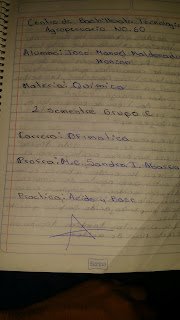 Centro de Bachillerato Tecnologico
Agropecuario No. 60
Alumno: Jose Manuel Maldonado
Moncer
Materia: Quimica
2 semestre Grupo C
Carrera: Ofimatica
Profra: M.C. Sandra I.
Practica: Acido y Base